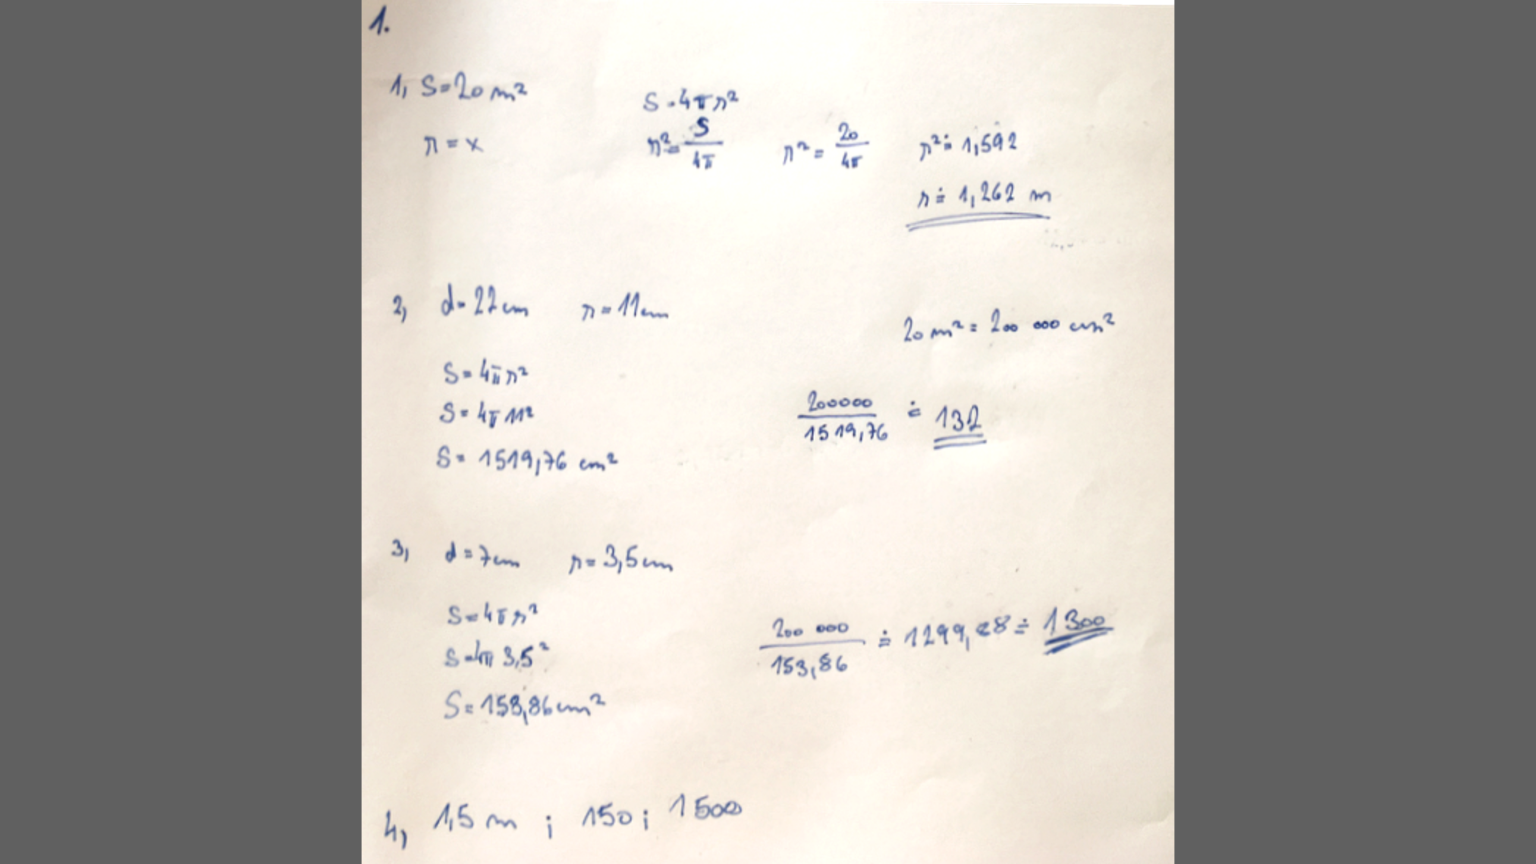 1.
1, S=20 m²
r = x
S = 4π r²
r² = S/4π
r² = 20/4π
r² ≐ 1,592
r ≐ 1,262 m
2, d = 22 cm r = 11 cm
20 m² = 200 000 cm²
S = 4π r²
S = 4π 11²
S = 1519,76 cm²
200000/1519,76 ≐ 132
3, d = 7 cm r = 3,5 cm
S = 4π r²
S = 4π 3,5²
S = 153,86 cm²
200 000/153,86 ≐ 1299,88 ≐ 1300
4, 1,5 m ; 150 ; 1500